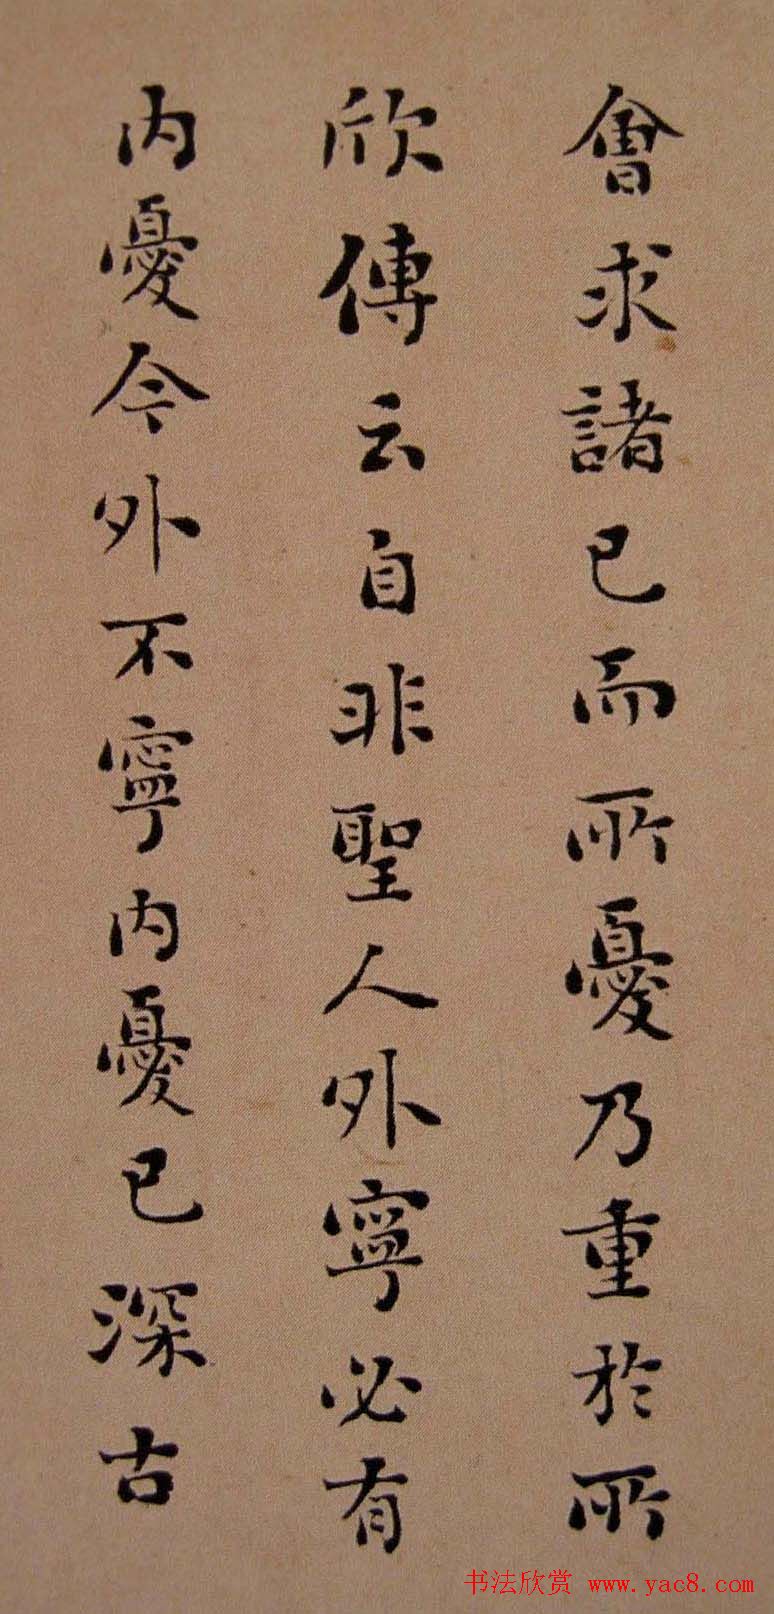 會求諸己而所憂乃重於所
欣傳云自非聖人外寧必有
內憂今外不寧內憂已深古
书法欣赏 www.yac8.com